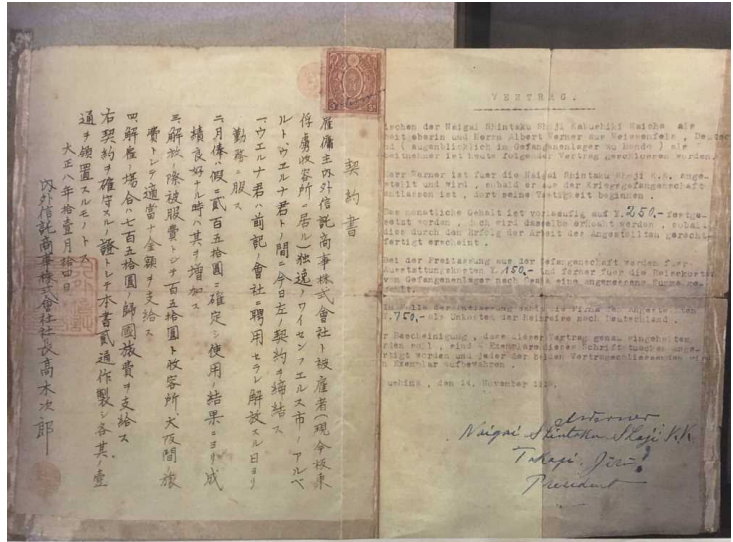 契約書
雇傭主内外信託商事株式會社ト被雇者(現今板東
俘虜收容所ニ居ル)独逸ノワイセンフエルス市ノアルベ
ルトウエルナ君トノ間ニ今日左ノ契約ヲ締結ス
一ウエルナ君ハ前記ノ會社ニ聘用セラレ解放スル日ヨリ
勤務ニ服ス
二月俸ハ假ニ貳百五拾圓ニ確定シ使用ノ結果ニヨリ成
績良好ナル時ハ其ヲ増加ス
三解放ノ際被服費トシテ百五拾圓ト收容所大阪間ノ旅
費トシテ適當ナ金額ヲ支給ス
四解雇ノ場合ハ七百五拾圓ノ歸國旅費ヲ支給ス
右契約ヲ確守スルノ證トシテ本書貳通作製シ各其ノ壹
通ヲ領置スルモノトス
大正八年拾壹月拾四日
内外信託商事株式會社社長高木次郎
VERTRAG.
ischen der Naigai Shintaku Shoji Kabushiki Kaisha als
und Herrn Albert Werner aus Weissenfels, Deutsc
( augenblicklich im Gefangenenlager zu Bando ) als
beitnehmer ist heute folgender Vertrag geschlossen worden.
Herr Werner ist fuer die Naigai Shintaku Shoji K.K. ange-
stellt und wird , sobald er aus der Kriegsgefangenschaft
entlassen ist , dort seine Taetigkeit beginnen.
Das monatliche Gehalt ist vorlaeufig auf Y.250,- festge-
setzt worden , doch wird dasselbe erhoeht werden , sobal
dies durch den Erfolg der Arbeit des Angestellten gerecht
fertigt erscheint.
Bei der Freilassung aus der Gefangenschaft werden fuer
Ausstattungskosten Y.150,- und ferner fuer die Reisekosten
vom Gefangenenlager nach Osaka eine angemessene Summe ge-
zahlt.
Im Falle der Entlassung zahlt die Firma dem Angestellten
Y.750,- als Unkosten der Heimreise nach Deutschland.
r Bescheinigung , dass dieser Vertrag genau eingehalten
rden soll , sind 2 Exemplare
rtigt worden und jeder der beiden Vertragschliessenden
n Exemplar aufbewahren.
den 14. November 1919.
AWerner
Naigai Shintaku Shoji K.K.
Takagi Jiro
President